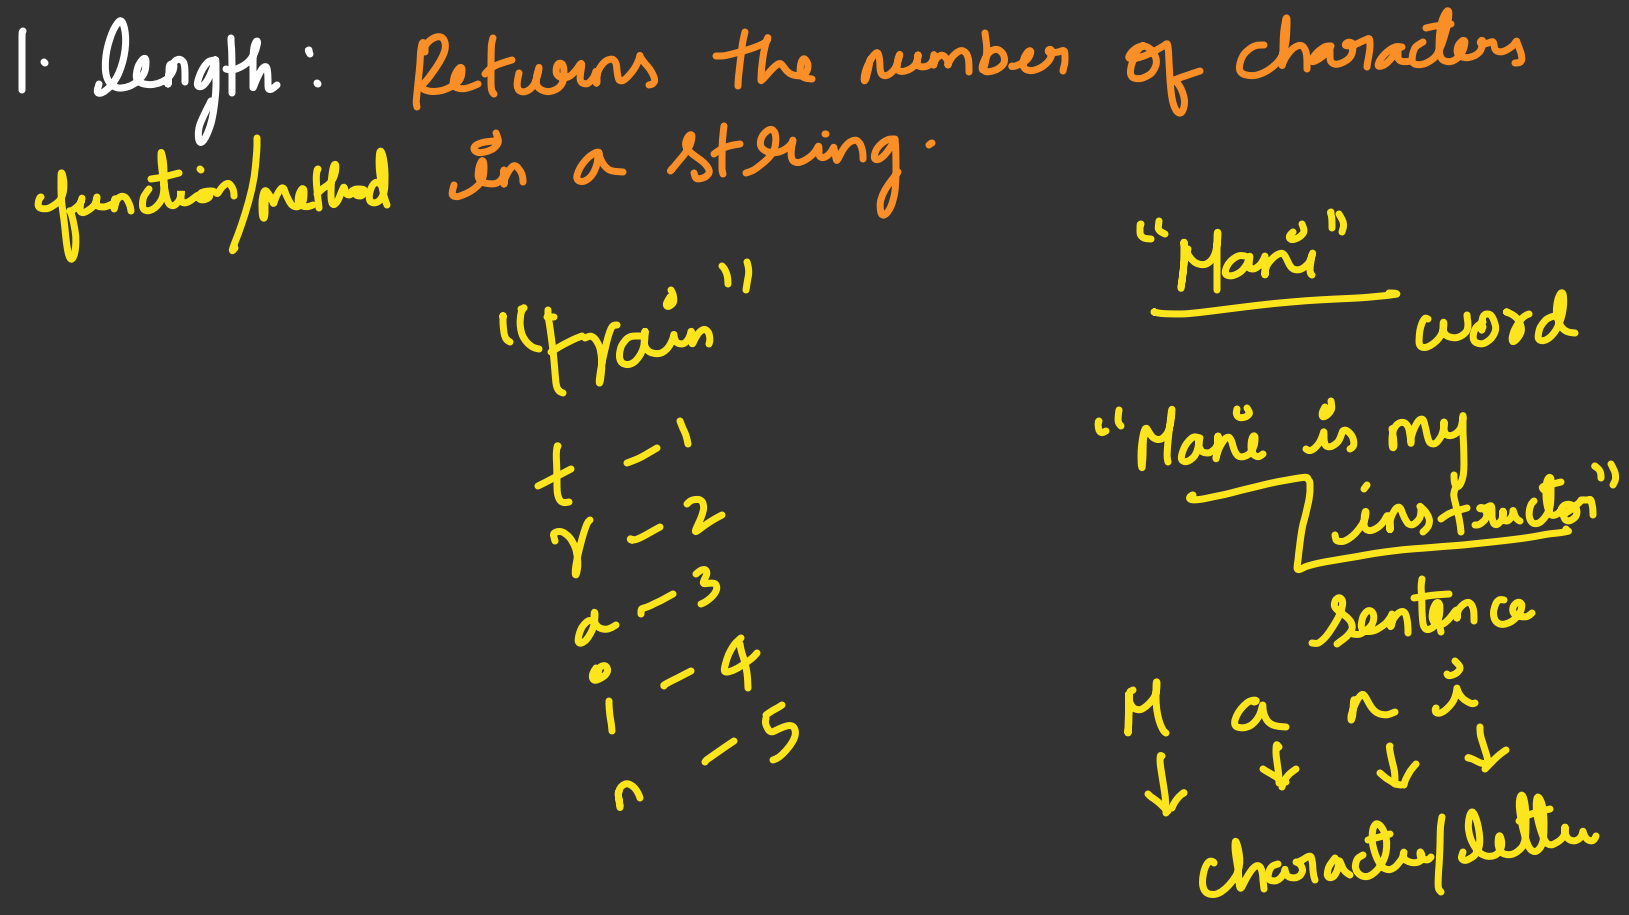 1. length: Returns the number of characters
function/method in a string.
"train"
t - 1
r - 2
a - 3
i - 4
n - 5
"Mani"
word
"Mani is my
instructor"
sentence
M a n i
↓ ↓ ↓ ↓
character/letter